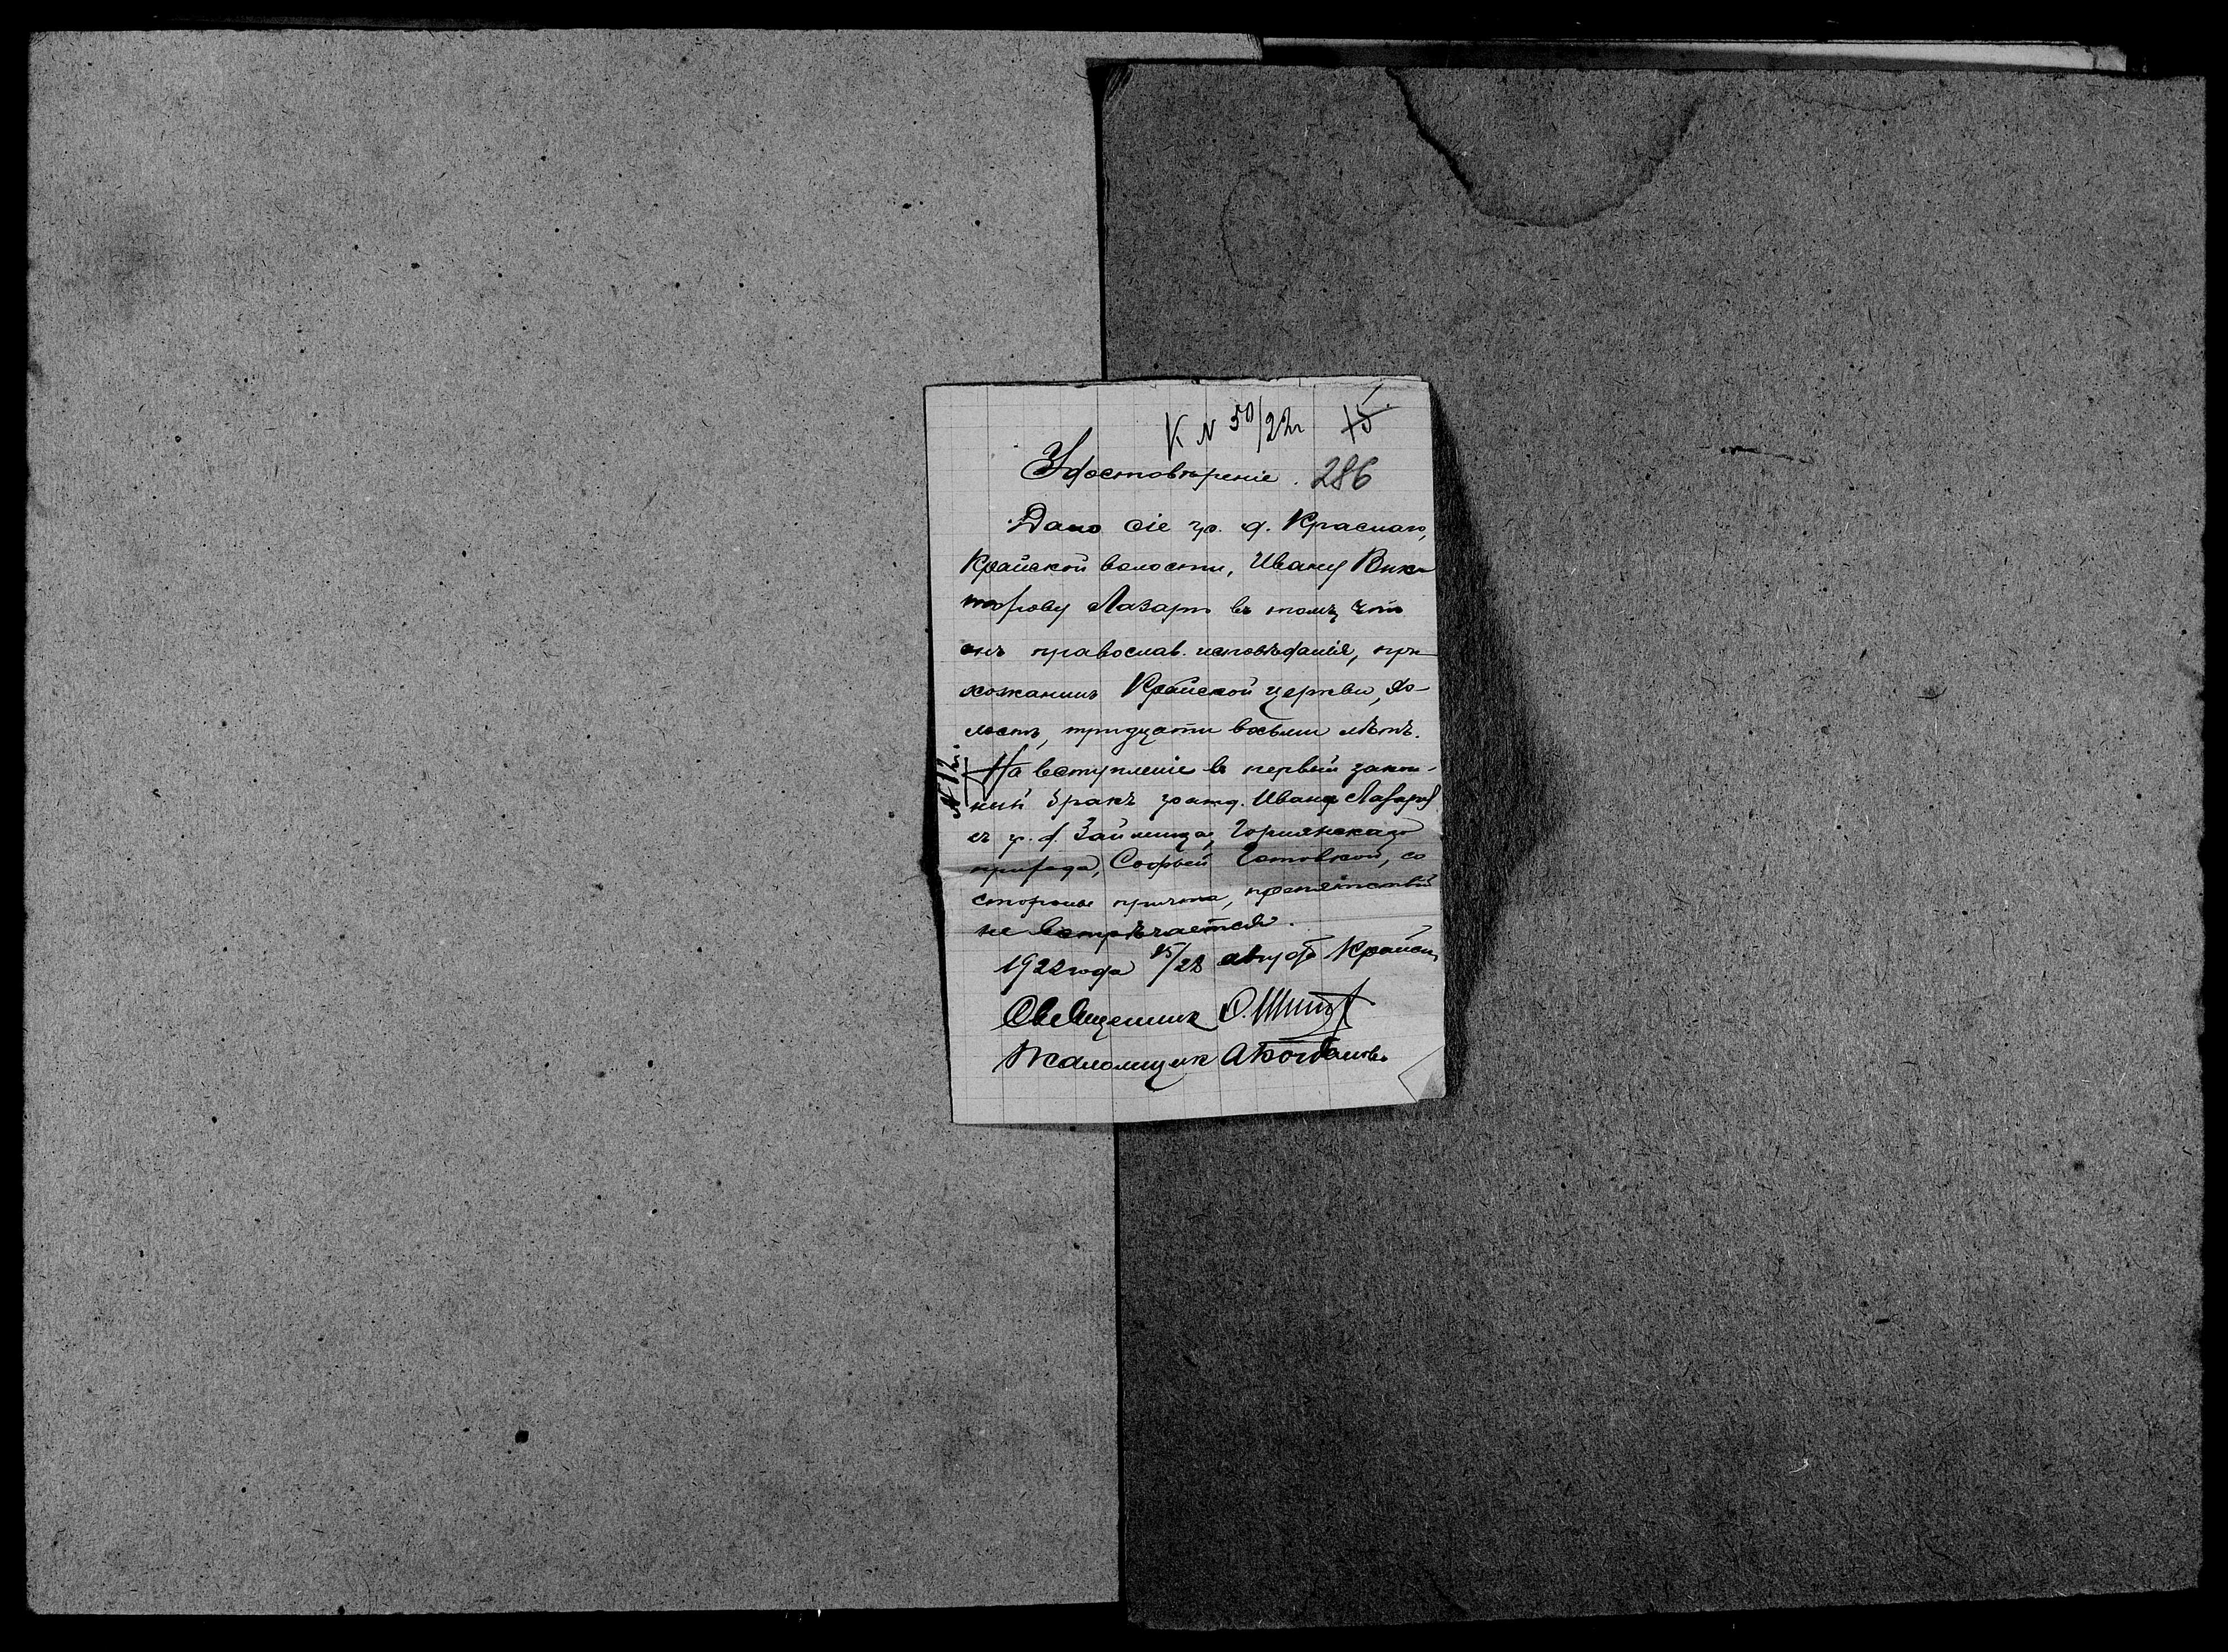 К N 50/22 г 15
Удостовѣреніе. 286
Дано сіе гр. д. Краснаго,
Крайской волости, Ивану Вик-
торову Лазарь въ томъ что
онъ православ. исповѣданія, при
хожанинъ Крайской церкви, хо-
лостъ, тридцати восьми лѣтъ.
На вступленіе въ первый закон-
ный бракъ гражд. Ивана Лазарь
съ гр. д. Займища,
прихода, Софьей со
стороны причта, препятствій
не встрѣчается.
1922 года 15/28 августа Крайск
Священник О.
Псаломщик А Богданов
N 12.